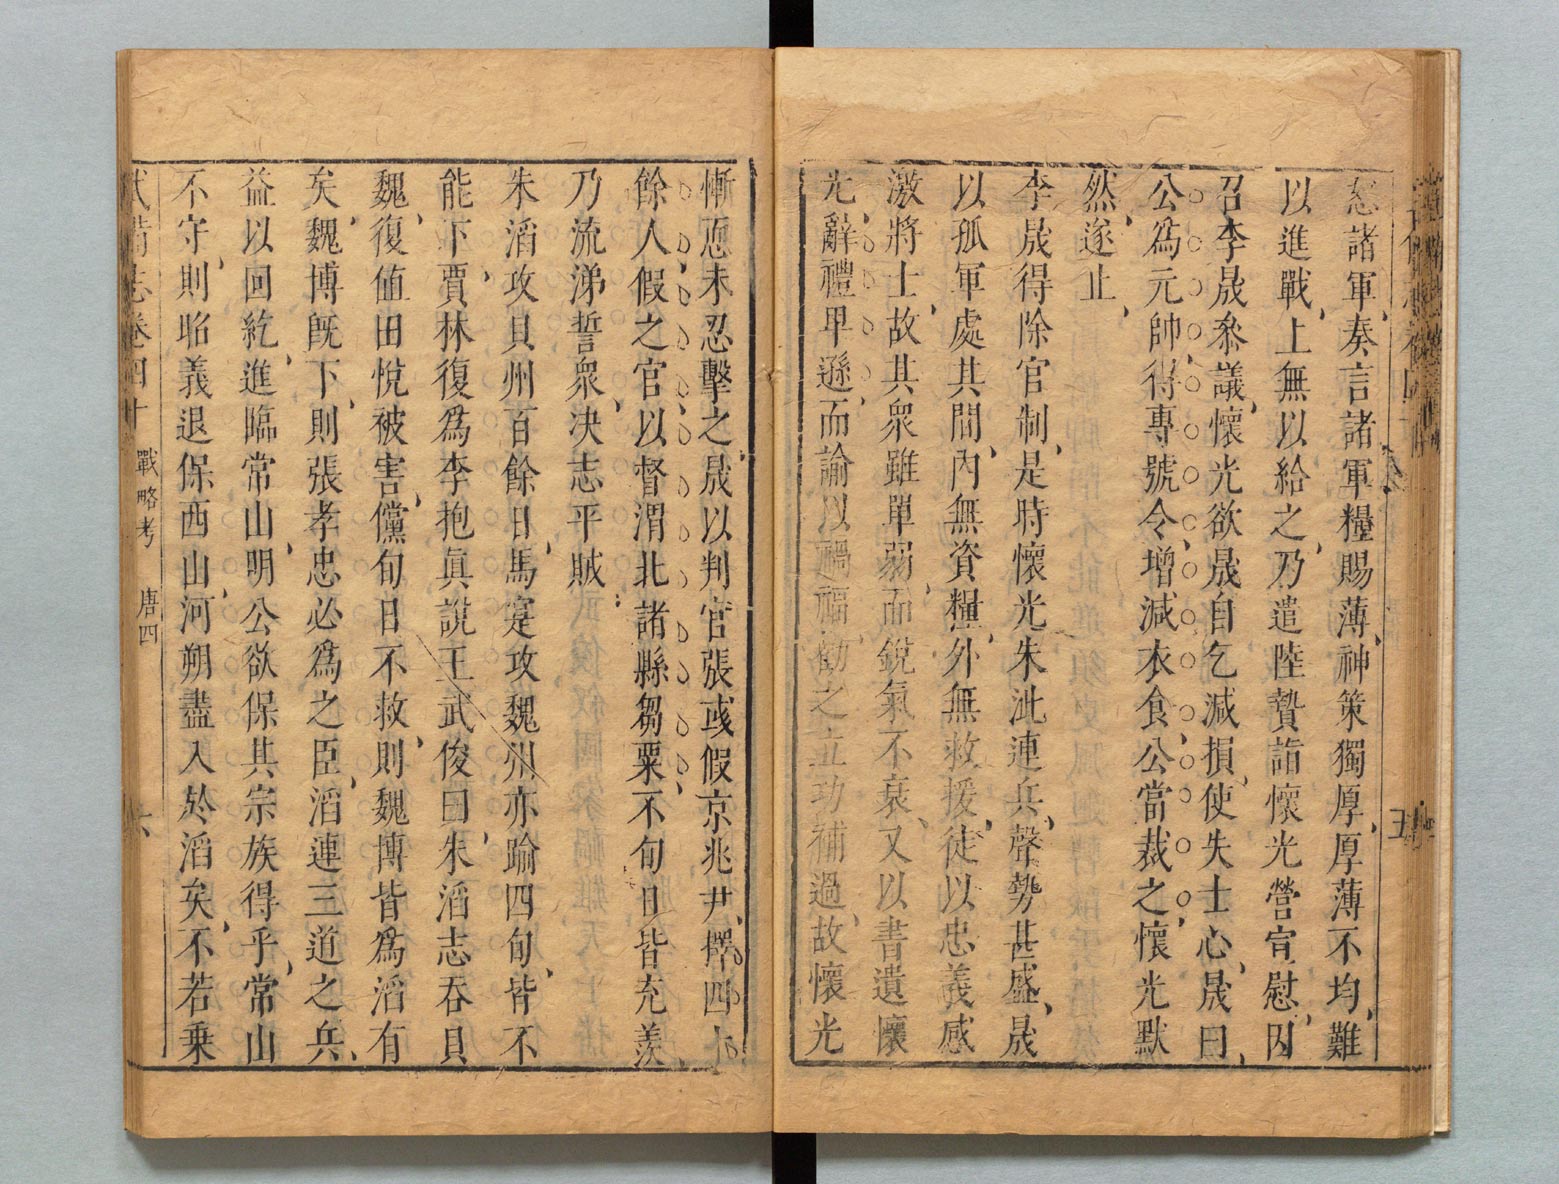 怒諸軍奏言諸軍糧賜薄神策獨厚厚薄不均難
以進戰上無以給之乃遣陸贄詣懷光營宣慰因
召李晟叅議懷光欲晟自乞減損使失士心晟曰
公爲元帥得專號令增減衣食公當裁之懷光默
然遂止
李晟得除官制是時懷光朱泚連兵聲勢甚盛晟
以孤軍處其間內無資糧外無救援徒以忠義感
激將士故其衆雖單弱而銳氣不衰又以書遺懷
光辭禮卑遜而諭以禍福勸之立功補過故懷光
慚恧未忍擊之晟以判官張彧假京兆尹擇四十
餘人假之官以督渭北諸縣芻粟不旬日皆充羨
乃流涕誓衆決志平賊
朱滔攻貝州百餘日馬寔攻魏州亦踰四旬皆不
能下賈林復爲李抱眞說王武俊曰朱滔志吞貝
魏復值田悅被害儻旬日不救則魏博皆爲滔有
矣魏博旣下則張孝忠必爲之臣滔連三道之兵
益以回紇進臨常山明公欲保其宗族得乎常山
不守則昭義退保西山河朔盡入於滔矣不若乗
武備志卷四十 戰略考 唐四 六
五